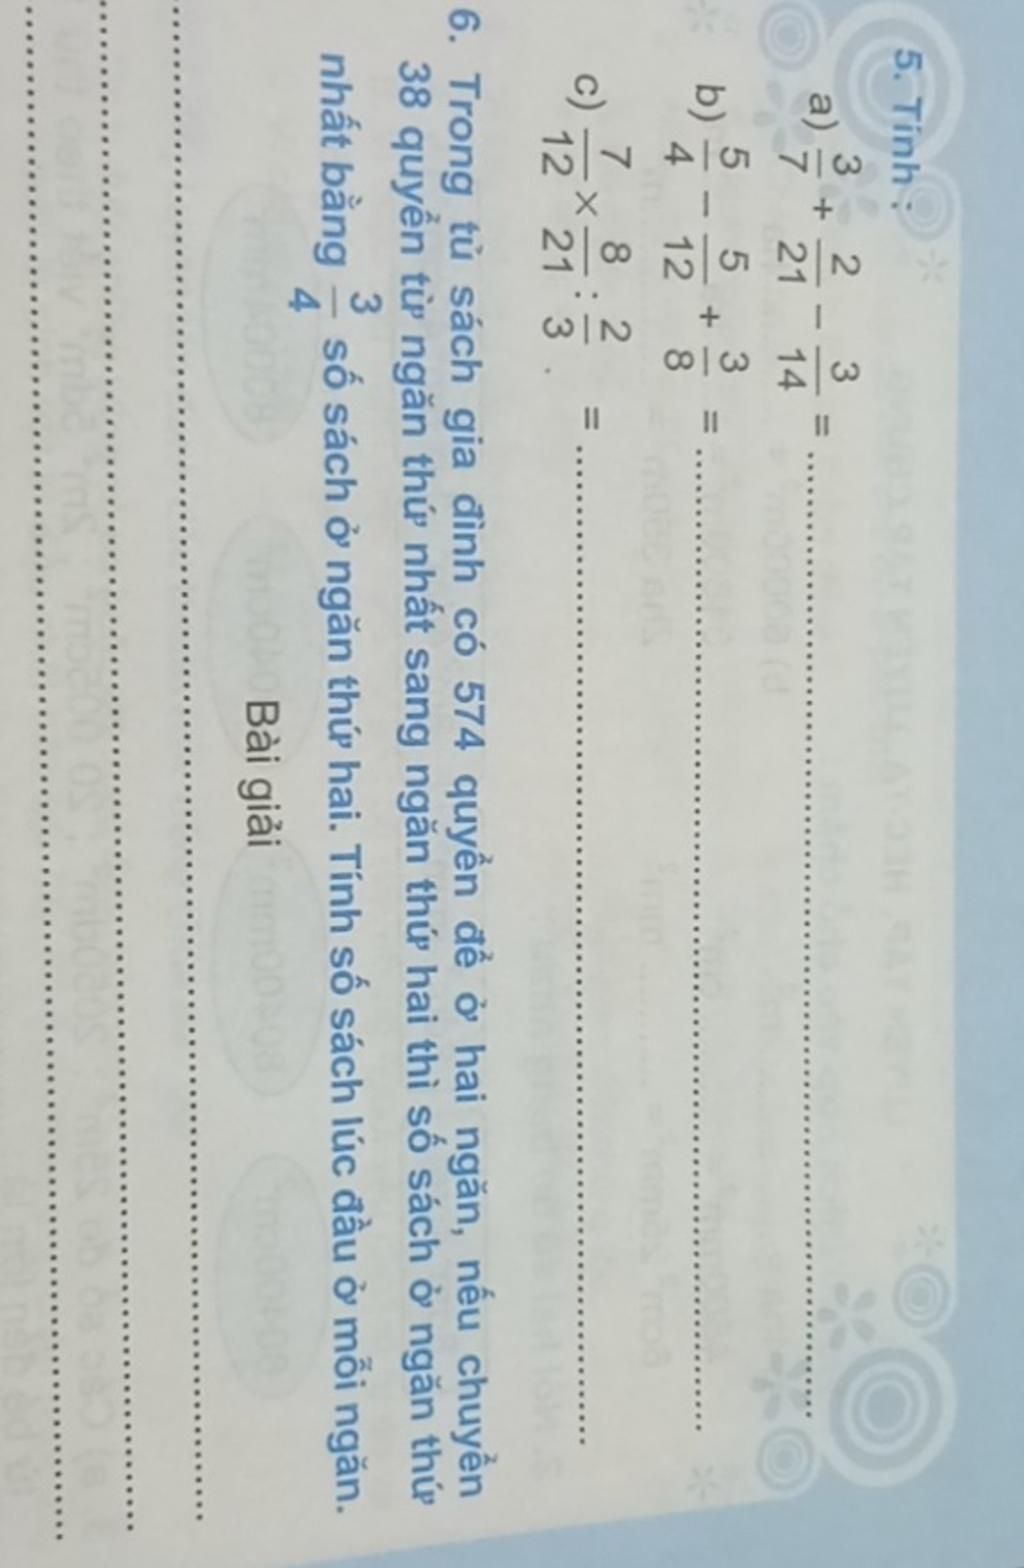 5. Tính :
a) 3/7 + 2/21 - 3/14 = ........
b) 5/4 - 5/12 + 3/8 = ........
c) 7/12 × 8/21 : 2/3 . = ........
6. Trong tủ sách gia đình có 574 quyển để ở hai ngăn, nếu chuyển
38 quyển từ ngăn thứ nhất sang ngăn thứ hai thì số sách ở ngăn thứ
nhất bằng 3/4 số sách ở ngăn thứ hai. Tính số sách lúc đầu ở mỗi ngăn.
Bài giải